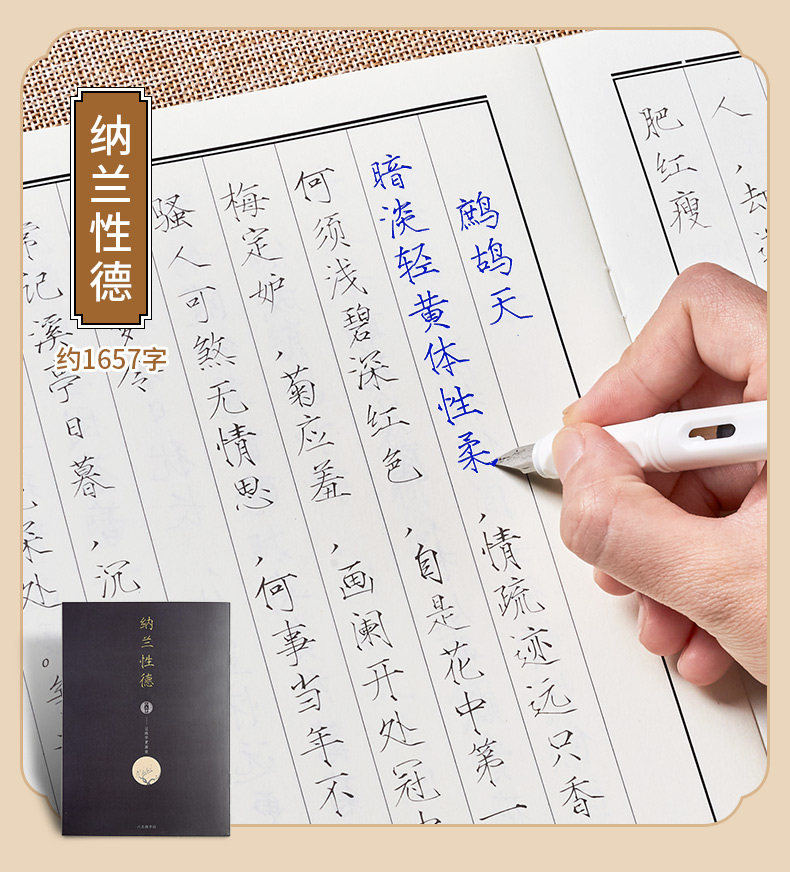 纳兰性德
约1657字
人，却
肥红瘦
鹧鸪天
暗淡轻黄体性柔，情疏迹远只香
何须浅碧深红色，自是花中第一
梅定妒，菊应羞，画阑开处冠
骚人可煞无情思，何事当年不
令
常记溪亭日暮，沉
处。
纳兰性德